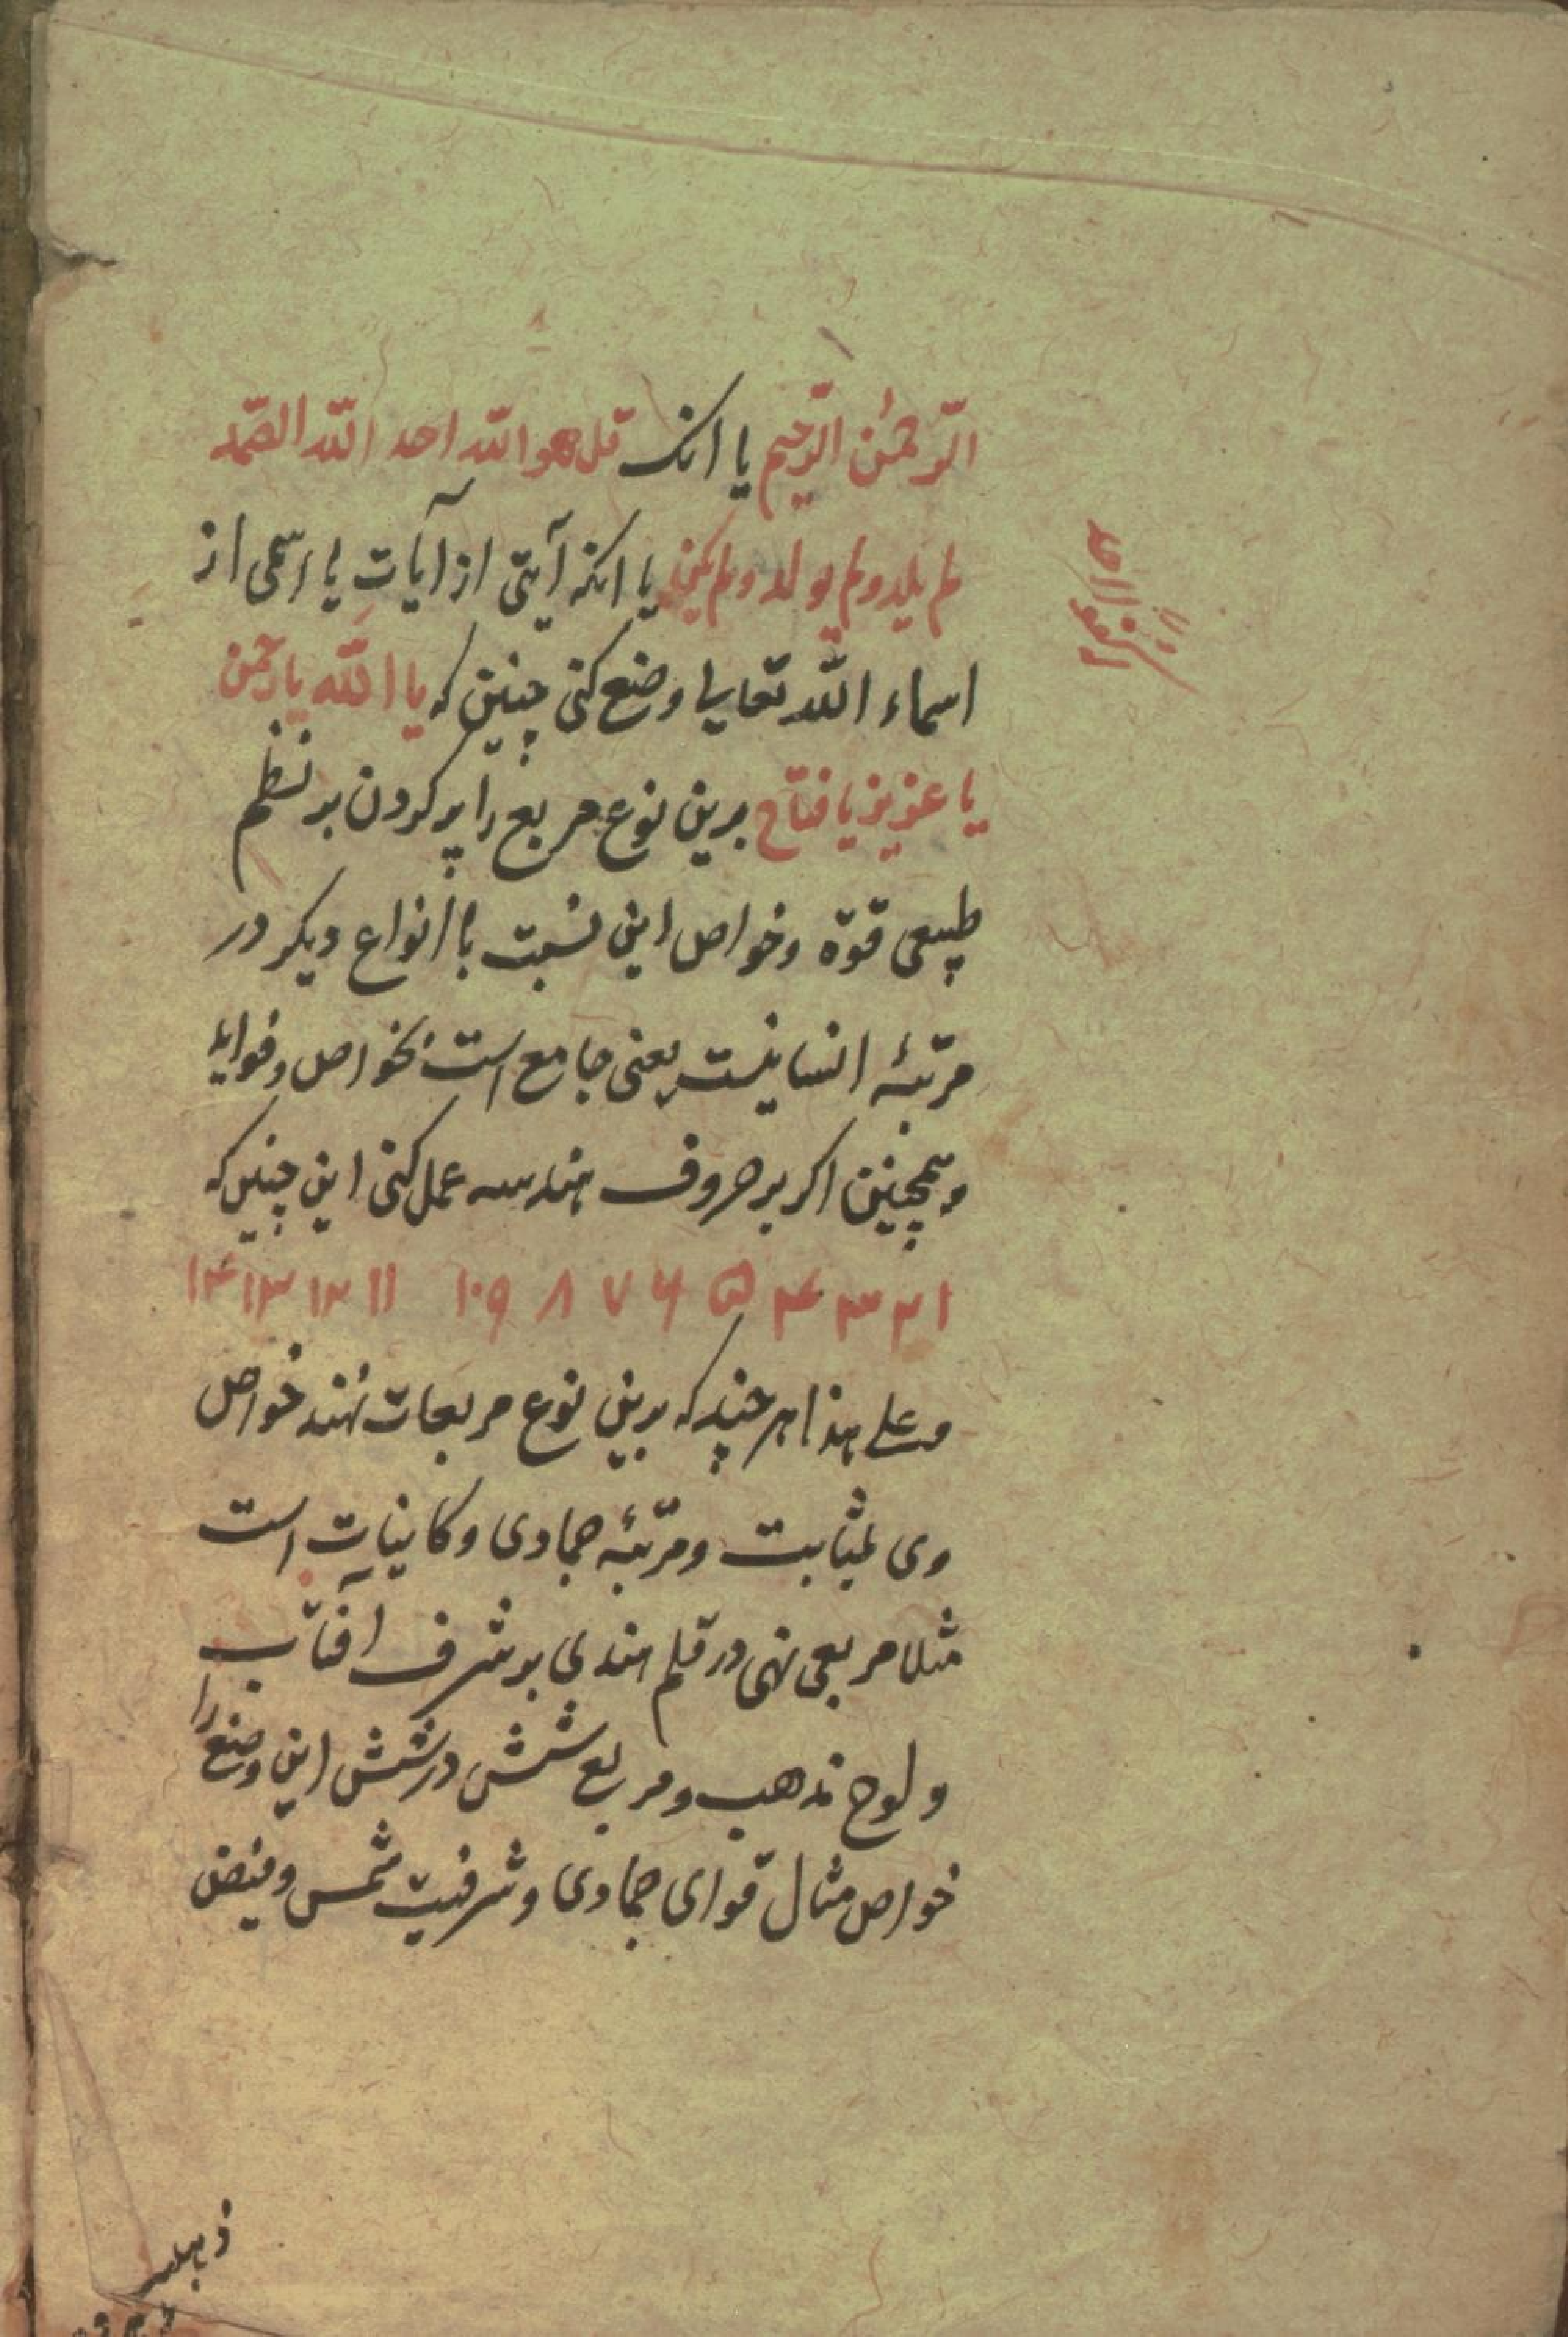 الرّحمٰن الرّحیم یا انک قل هو اللّه احد اللّه الصّمد
لم یلد و لم یولد و لم یکن یا انکه آیتی از آیات یا اسمی از
اسماء اللّه تعالی وضع کنی چنین که یا اللّه یا رحمن
یا عزیز یا فتاح برین نوع مربع را پر کردن بر نظم
طبیعی قوّة وخواص این نسبت با انواع دیکر در
مرتبهٔ انسانیست یعنی جامع است بخواص وفواید
و همچنین اکر بر حروف هندسه عمل کنی این چنین که
۱ ۲ ۳ ۴ ۵ ۶ ۷ ۸ ۹ ۱۰ ۱۱ ۱۲ ۱۳ ۱۴
و علی هذا هر چند که برین نوع مربعات نهند خواص
وی بمثابت ومرتبهٔ جمادی و کاینات است
مثلا مربعی نهی در قلم هندی بر شرف آفتاب
و لوح ذهب و مربع شش در شش این وضع را
خواص مثال قوای جمادی وشرفیت شمس وفیض